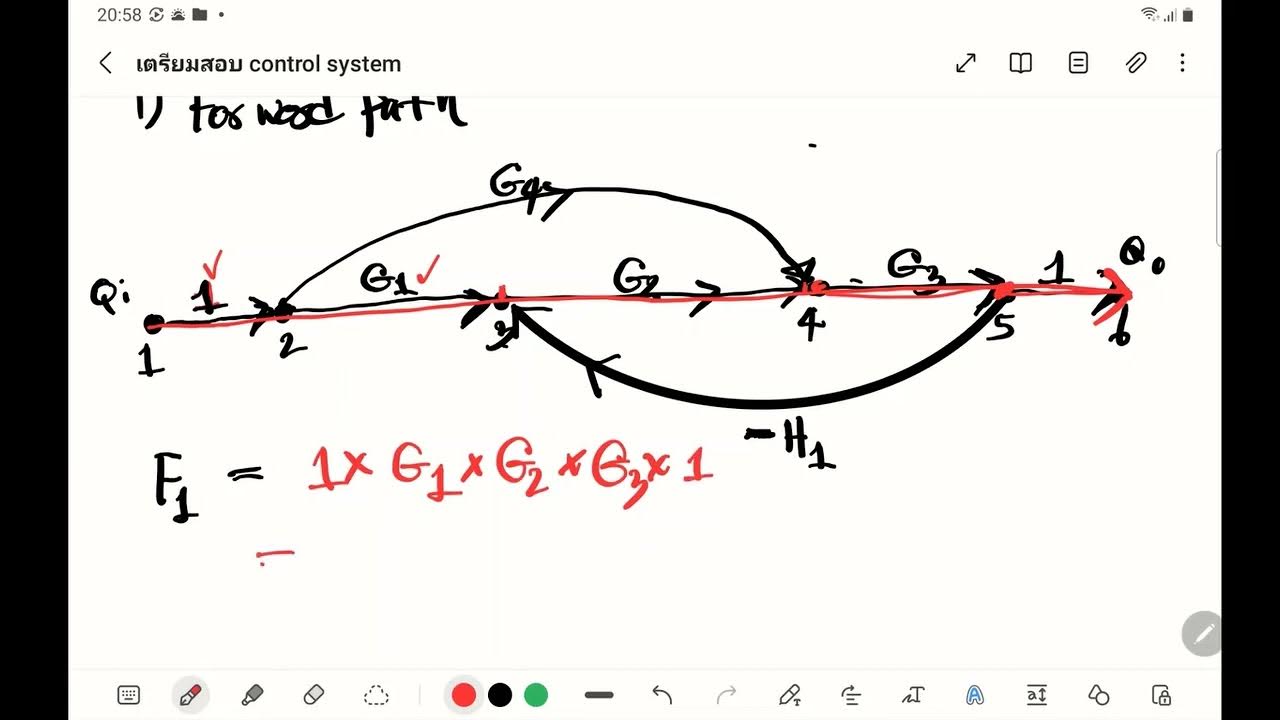 20:58
เตรียมสอบ control system
1) forword path
G4
Qi 1 G1 G2 G3 1 Qo
1 2 3 4 5 6
-H1
F1 = 1 x G1 x G2 x G3 x 1
=